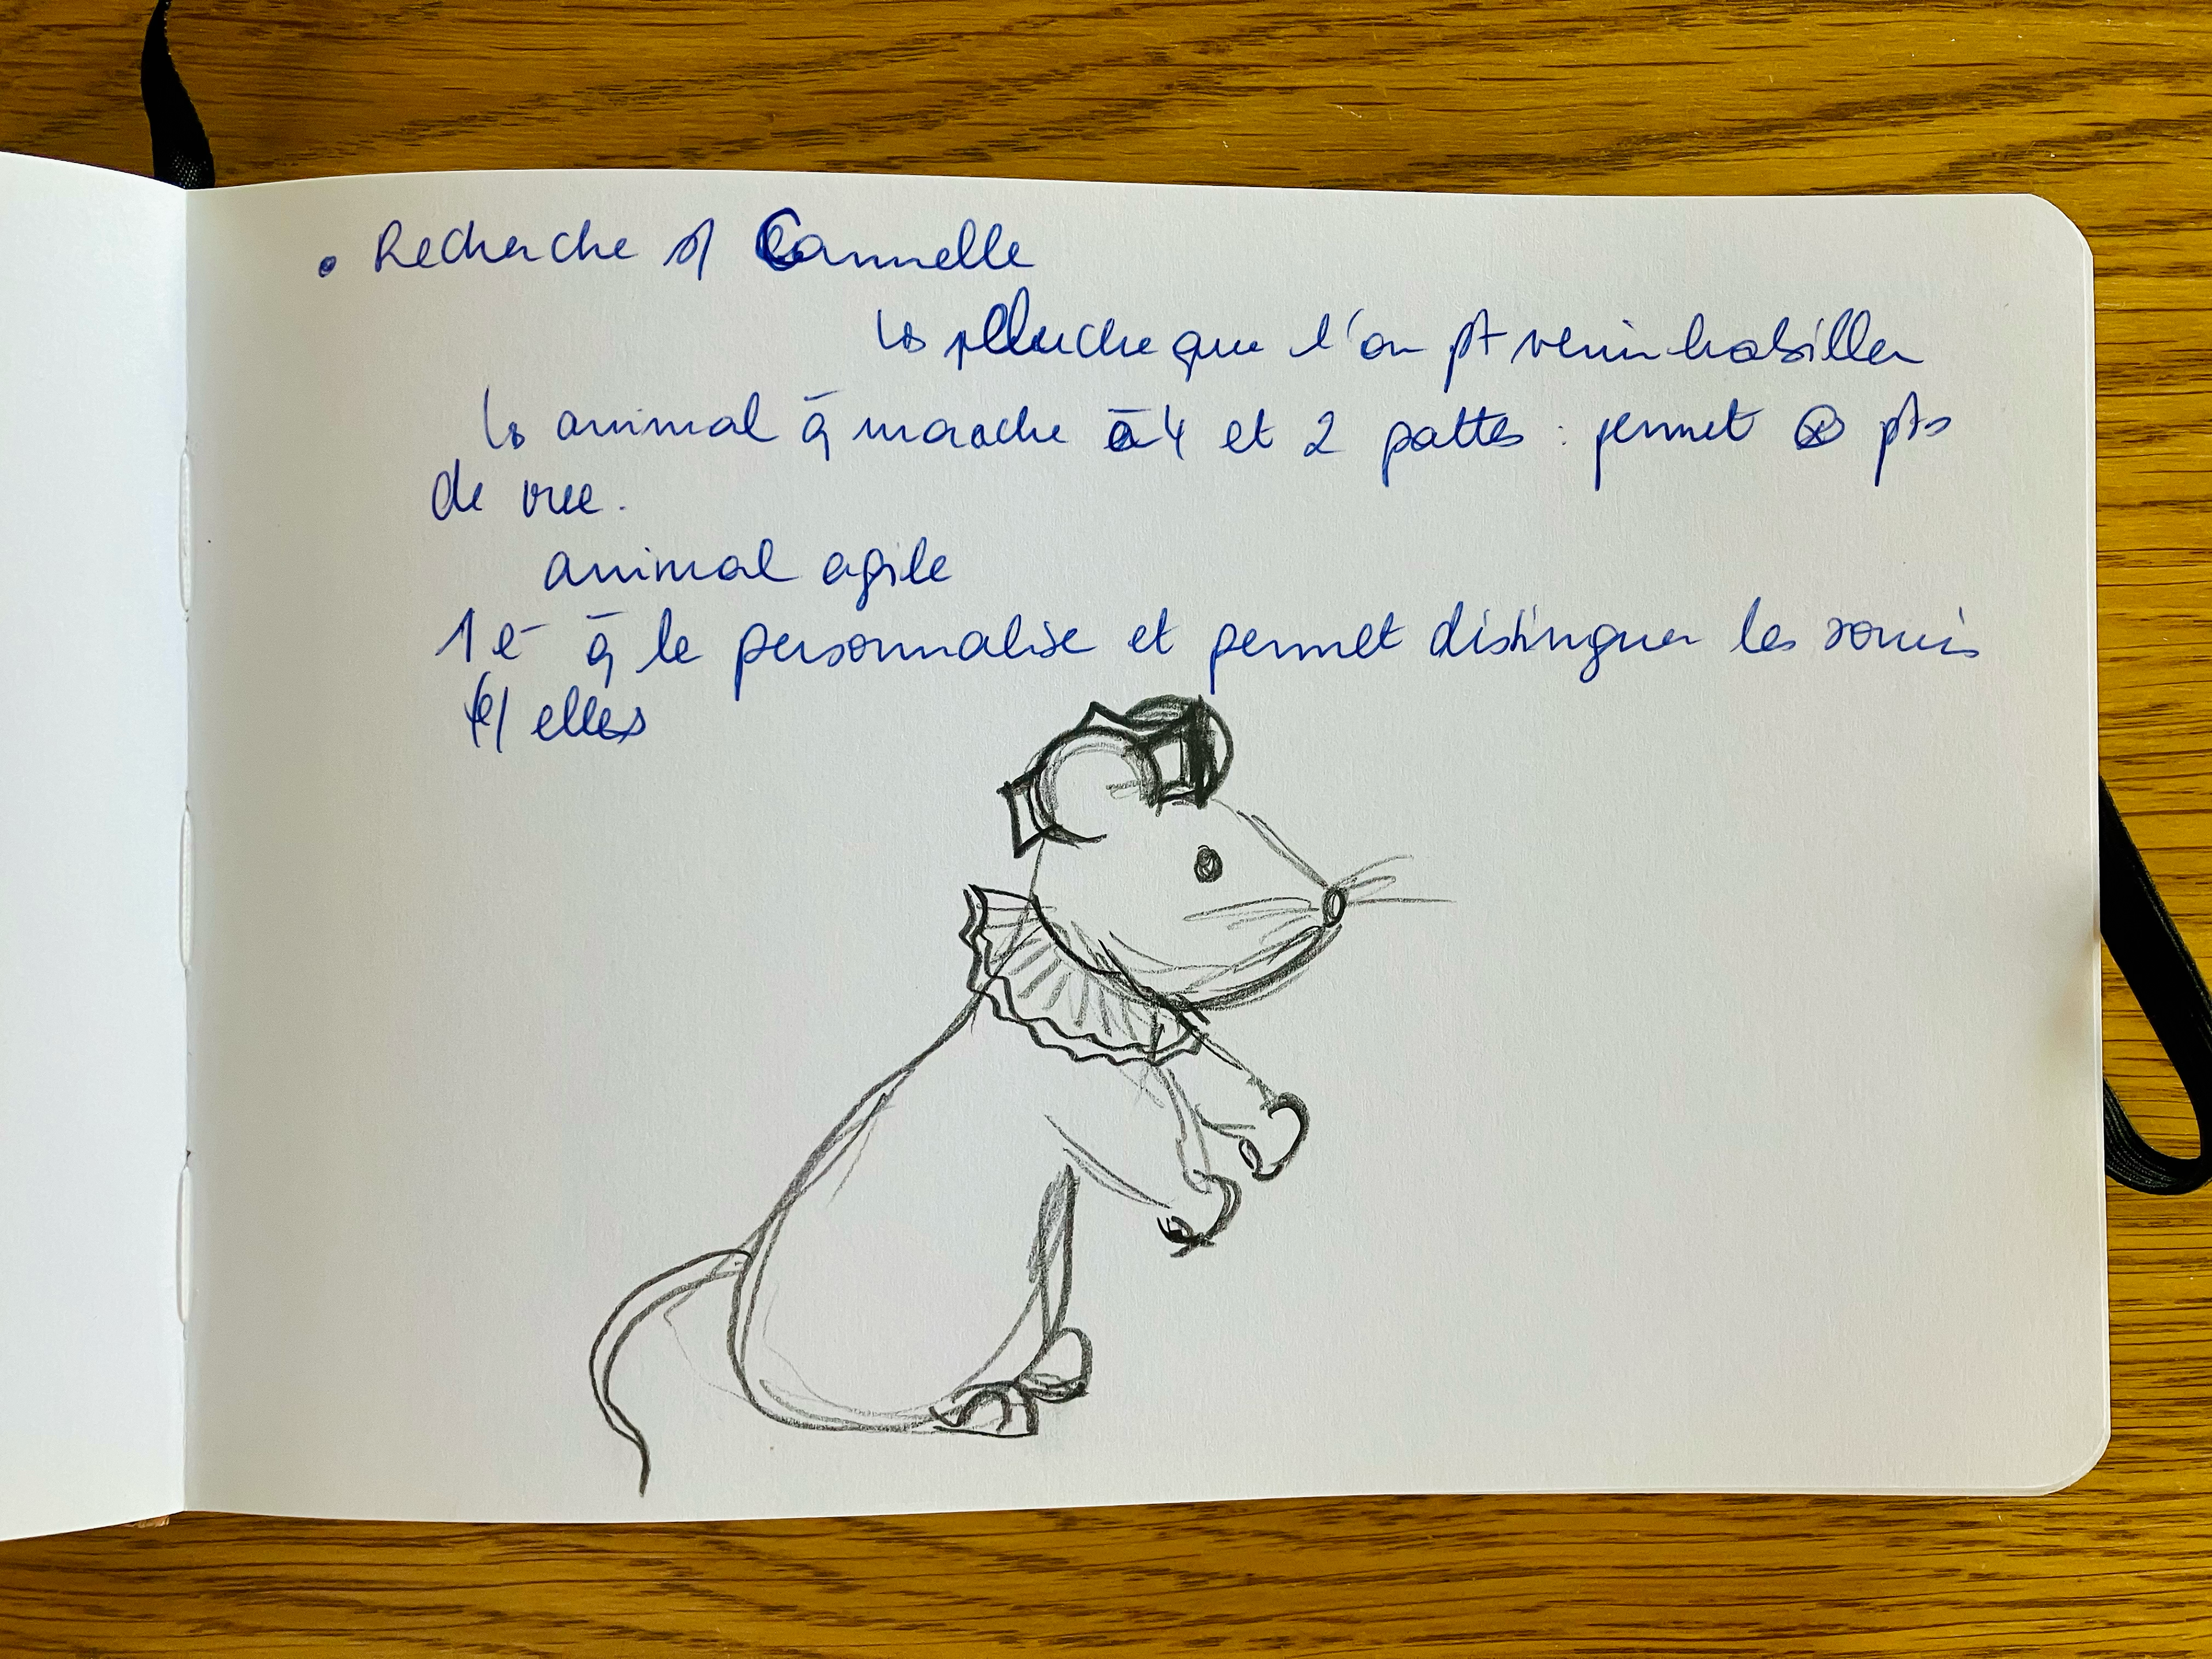 • Recherche s/ Cannelle
↳ pluche que l'on pt venir habiller
↳ animal q̄ marche à 4 et 2 pattes : permet ⊗ pts
de vue.
animal agile
1 e- q̄ le personnalise et permet distinguer les souris
e/ elles